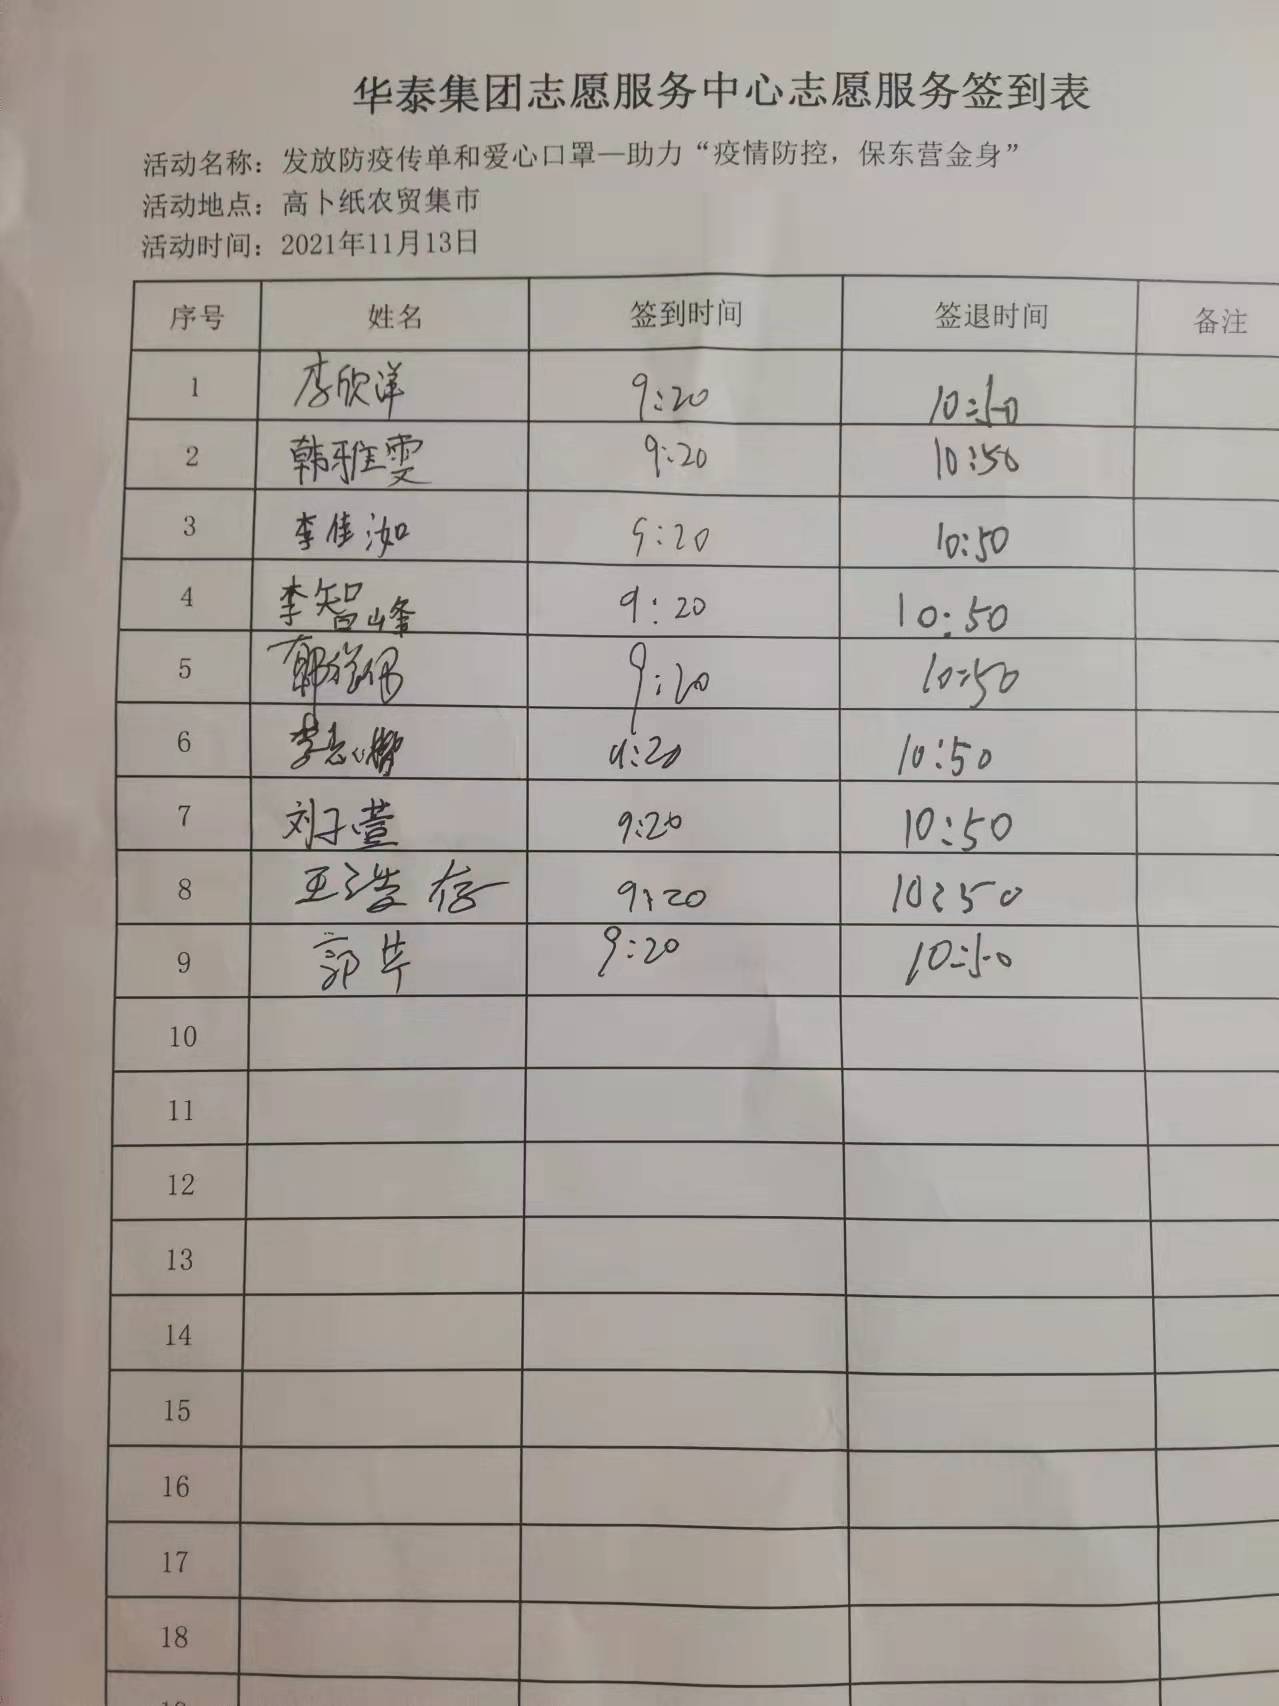 华泰集团志愿服务中心志愿服务签到表
活动名称：发放防疫传单和爱心口罩—助力“疫情防控，保东营金身”
活动地点：高卜纸农贸集市
活动时间：2021年11月13日
序号 姓名 签到时间 签退时间 备注
1 李欣洋 9:20 10:50
2 韩雅雯 9:20 10:50
3 李佳汝 9:20 10:50
4 李智峰 9:20 10:50
5 9:20 10:50
6 李志鹏 9:20 10:50
7 刘子萱 9:20 10:50
8 9:20 10:50
9 郭芹 9:20 10:50
10
11
12
13
14
15
16
17
18